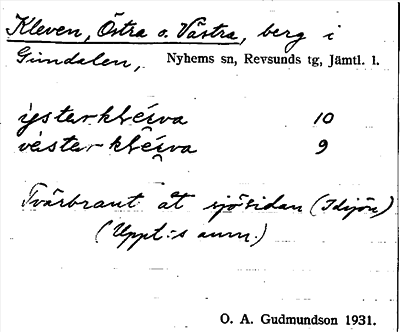 Kleven, Östra o. Västra, berg i
Gimdalen, Nyhems sn, Revsunds tg, Jämtl. l.
ı̨ster klèiva 10
vèster klèiva 9
Tvärbrant åt sjösidan (Idsjön)
(Uppt:s anm.)
O. A. Gudmundson 1931.